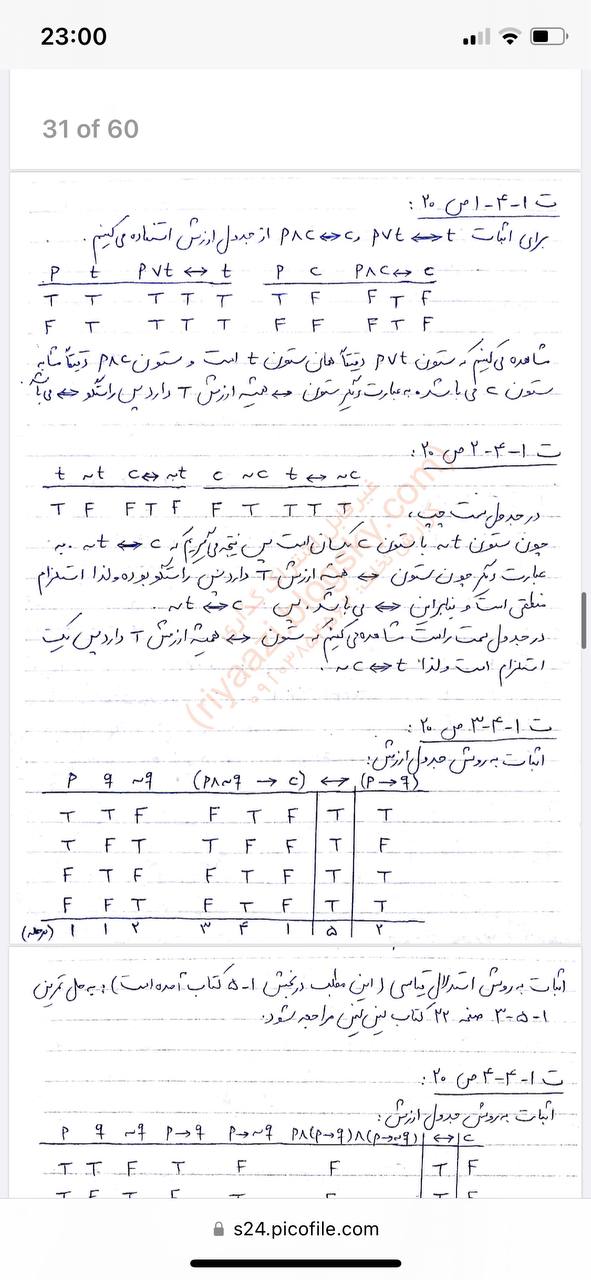 23:00
31 of 60
ت ۱-۴-۱ ص ۲۰ :
برای اثبات p∨t ⟷ t و p∧c ⟷ c از جدول ارزش استفاده می‌کنیم .
P t p∨t ⟷ t P c p∧c ⟷ c
T T T T T T F F T F
F T T T T F F F T F
مشاهده می‌کنیم که ستون p∨t دقیقاً همان ستون t است و ستون p∧c دقیقاً مشابه
ستون c می‌باشد. به عبارت دیگر ستون ↔ همیشه ارزش T دارد پس راستگو ⇔ می‌باشد
ت ۱-۴-۲ ص ۲۰ :
t ~t c⟷~t c ~c t ⟷ ~c
T F F T F F T T T T
در جدول سمت چپ،
چون ستون ~t با ستون c یکسان است پس نتیجه می‌گیریم که ~t ⇔ c . به
عبارت دیگر چون ستون ↔ همیشه ارزش T دارد پس راستگو بوده ولذا استلزام
منطقی است و بنابراین ⇔ می‌باشد. پس ~t ⇔ c .
در جدول سمت راست مشاهده می‌کنیم که ستون ↔ همیشه ارزش T دارد پس یک
استلزام است ولذا ~c ⇔ t .
(riyaazi.blogsky.com)
ت ۱-۴-۳ ص ۲۰ :
اثبات به روش جدول ارزش:
P q ~q (p∧~q → c) ⟷ (p→q)
T T F F T F T T
T F T T F F T F
F T F F T F T T
F F T F T F T T
(مرحله) ۱ ۱ ۲ ۳ ۴ ۱ ۵ ۲
اثبات به روش استدلال قیاسی (این مطلب در بخش ۱-۵ کتاب آمده است): به حل تمرین
۱-۵-۳ صفحه ۲۲ کتاب لین لین مراجعه شود.
ت ۱-۴-۴ ص ۲۰ :
اثبات به روش جدول ارزش:
P q ~q p→q p→~q p∧(p→q)∧(p→~q) ⟷ c
T T F T F F T F
T F T F T F
s24.picofile.com